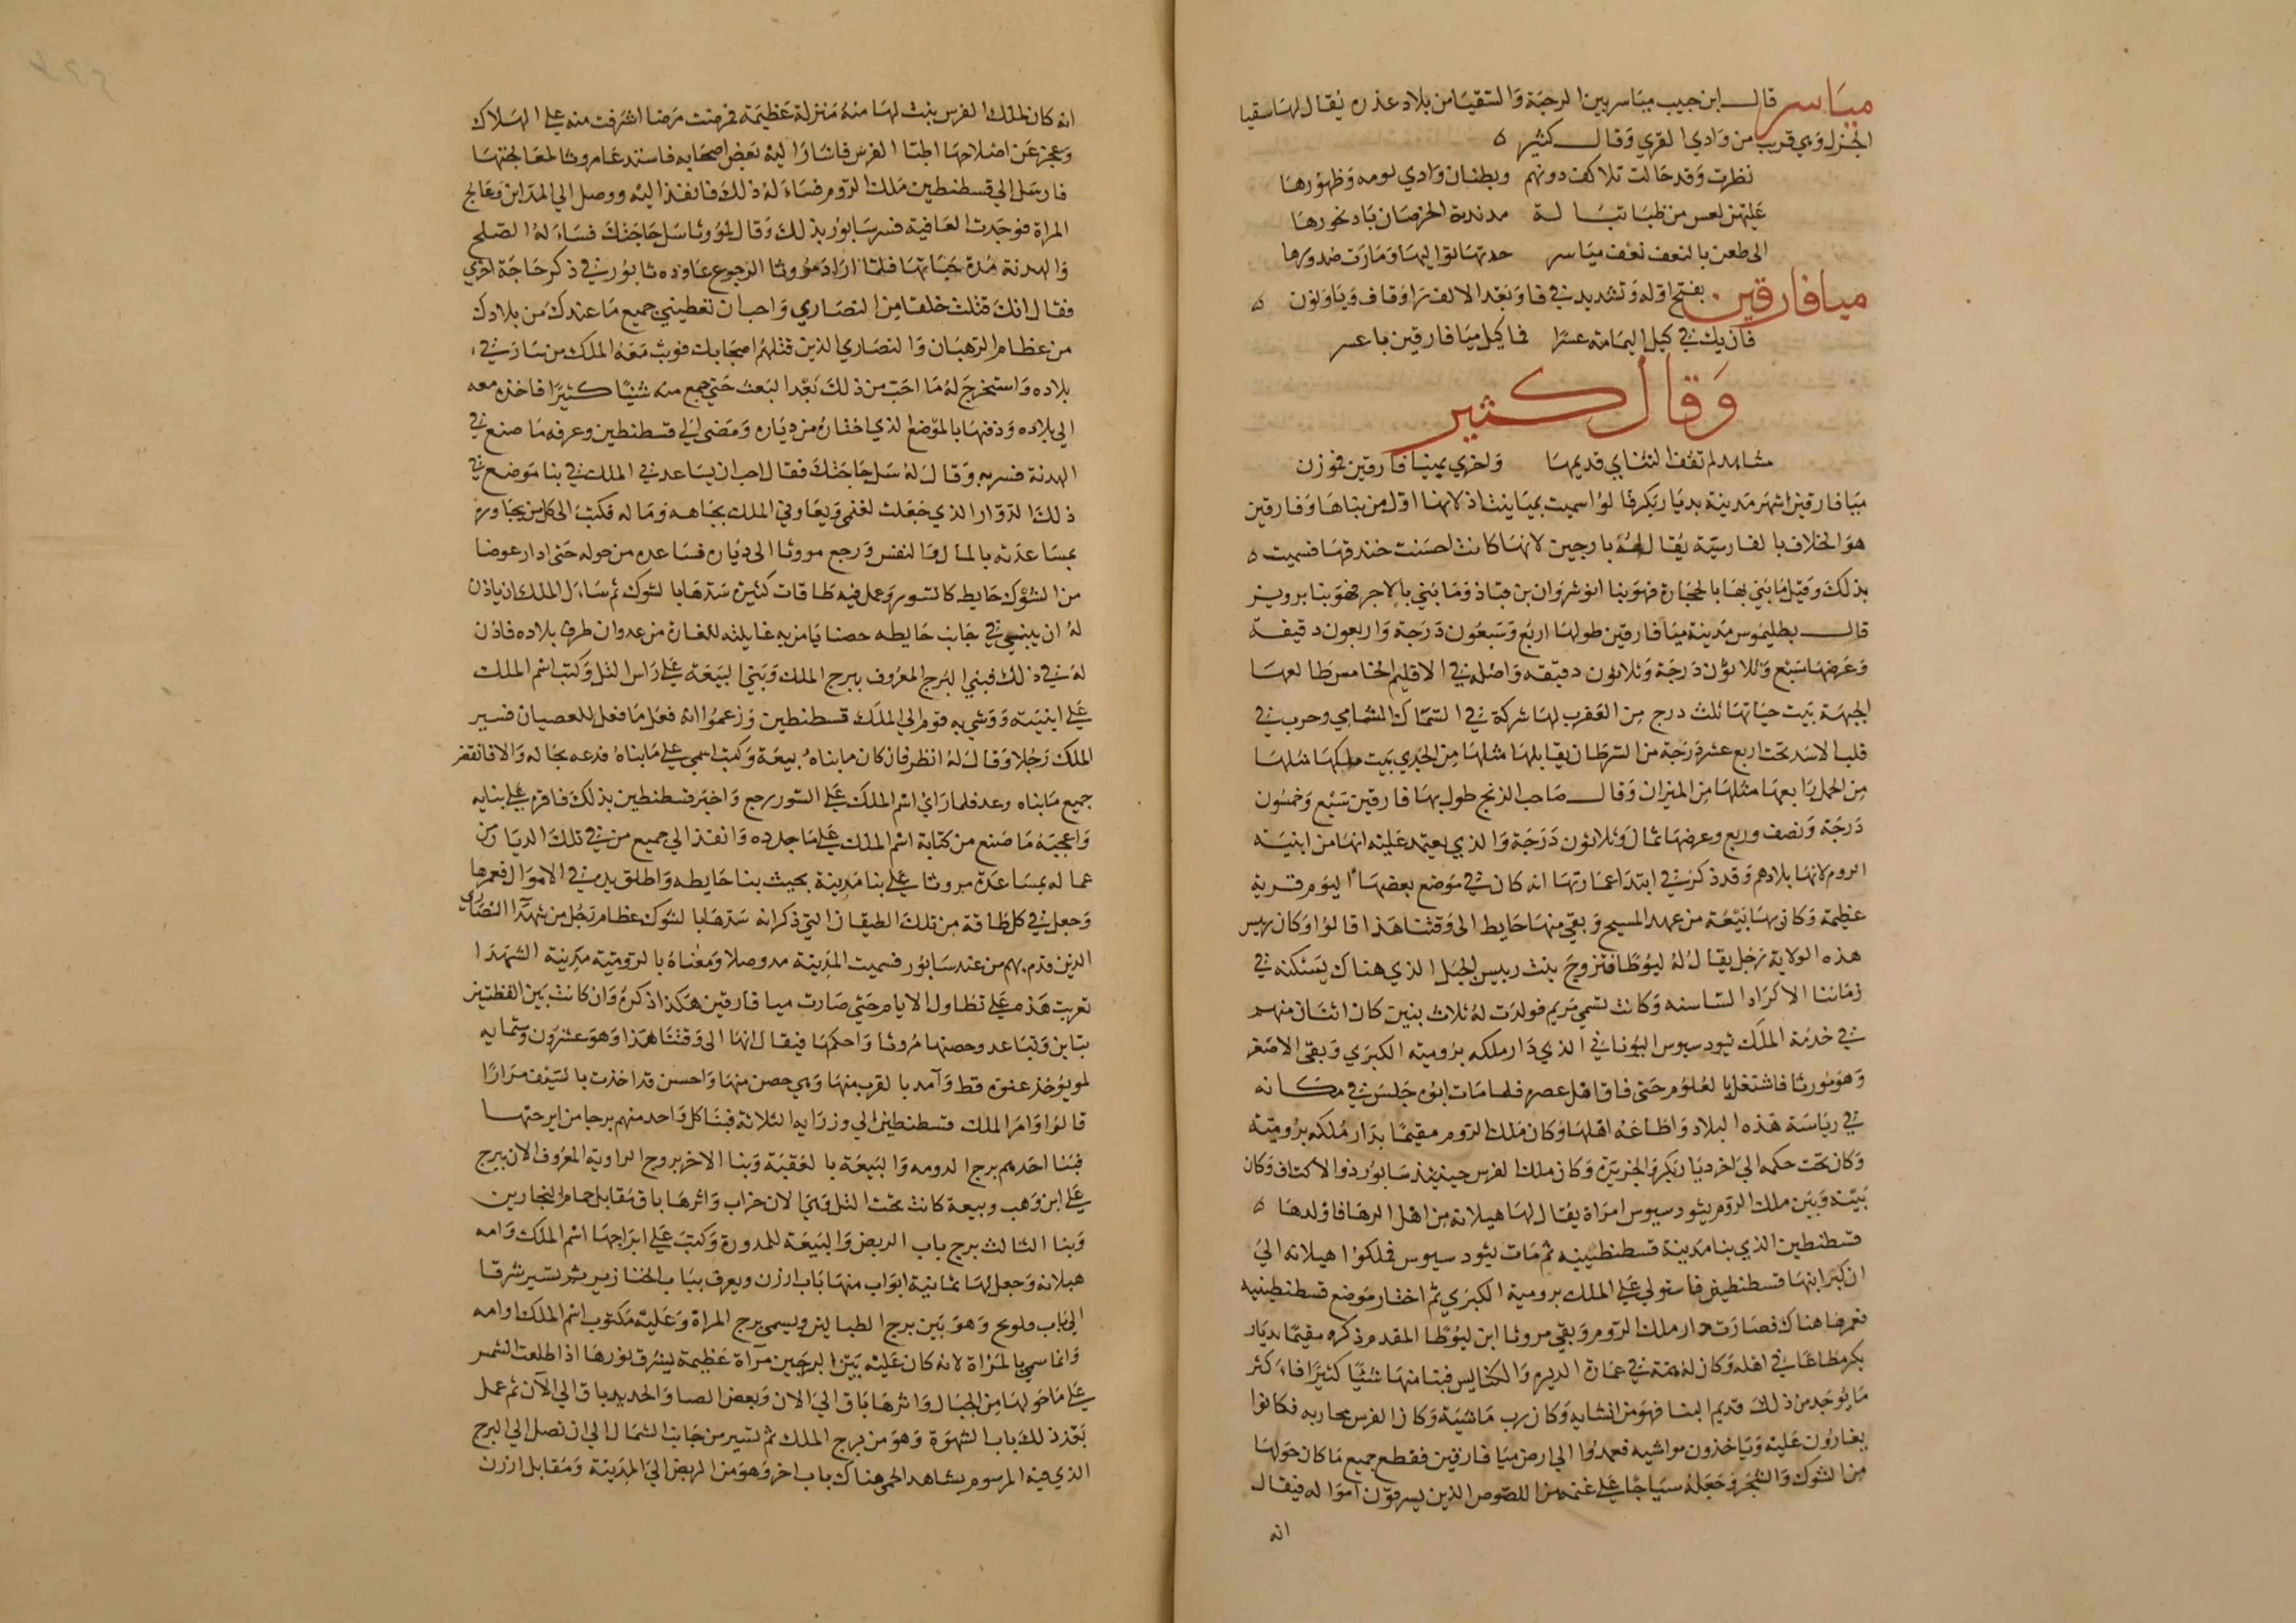 مياسر قال ابن حبيب مياسر بين الرحبة والسقيا من بلاد عذره يقال لها سقيا
الجزل وهي قريب من وادي القري وقال كثير ه
نظرت وقد حالت بلاكث دونهم وبطنان وادي لومه وظهورها
الى ظعن بالنعف نعف مياسر حدتها توالها ومارت صدورها
ميافارقين بفتح اوله وتشديد ثانيه وبعد الالف را وقاف ويا ونون ه
فان يك في كيل اليمامة عسرا فما كيل ميافارقين باعسر
وقال كثير
مشاهد لم تعف التنائي قديمها واخري بميافارقين فموزن
ميافارقين اشهر مدينة بديار بكر قالوا سميت بميا بنت اذ لانها اول من بناها وفارقين
هو الخلاف بالفارسية يقال له بارجين لانها كانت احسنت خندقها فسميت ه
بذلك وقيل ما بني بها بالحجارة فهو بنا انوشروان بن قباذ وما بني بالاجر فهو بنا برويز
قال بطليموس مدينة ميافارقين طولها اربع وسبعون درجة واربعون دقيقة
وعرضها سبع وثلاثون درجة وثلاثون دقيقه داخله في الاقليم الخامس طالعها
الجبهة بيت حياتها ثلث درج من العقرب لها شركة في السماك الشامي وحرب في
قلب الاسد تحت اربع عشر درجة من السرطان يقابلها مثلها من الجدي بيت ملكها مثلها
من الحمل رابعها مثلها من الميزان وقال صاحب الزنج طول ميافارقين سبع وخمسون
درجة ونصف وربع وعرضها ثمان وثلاثون درجة والذي يعتمد عليه انها من ابنية
الروم لانها بلادهم وقد ذكر في ابتدا عمارتها انه كان في موضع بعضها اليوم قرية
عظيمة وكان بها بيعة من عهد المسيح وبقي منها حايط الى وقتنا هذا قالوا وكان رييس
هذه الولاية رجل يقال له ليوطا فتزوج بنت رييس الجبل الذي هناك يسكنه في
زماننا الاكراد الشامسنه وكانت تسمى مريم فولدت له ثلاث بنين كان اثنان منهم
في خدمة الملك ثيودسيوس اليوناني الذي دار ملكه برومية الكبري وبقى الاصغر
وهو مروثا فاشتغل بالعلوم حتى فاق اهل عصره فلما مات ابوه جلس في مكانه
في رياسة هذه البلاد واطاعه اهلها وكان ملك الروم مقيما بدار ملكه برومية
وكان تحت حكمه الي اخر ديار بكر والجزيرة وكان ملك الفرس حينيذ سابور ذو الاكتاف وكان
بينه وبين ملك الروم ثيودسيوس امراة يقال لها هيلانه من اهل الرها فاولدها ه
قسطنطين الذي بنا مدينة قسطنطينيه ثم مات ثيودسيوس فملكوا هيلانه الي
ان كبر ابنها قسطنطين فاستولي على الملك برومية الكبري ثم اختار موضع قسطنطينيه
فعمرها هناك فصارت دار ملك الروم وبقي مروثا ابن ليوطا المقدم ذكره مقيما بديار
بكر مطاعا في اهله وكان له همة في عمارة الديره والكنايس فبنا منها شيئا كثيرا فاكثر
ما يوجد من ذلك قديم البنا فهو من انشايه وكان رب ماشية وكان الفرس محاربه فكانوا
يغارون عليه وياخذون مواشيه فعمدوا الي ارض ميافارقين فقطع جميع ما كان حولها
من الشوك والشجر وجعله سياجا على غنمه من اللصوص الذين يسرقون امواله فيقال
انه
انه كان لملك الفرس بنت لها منه منزلة عظيمة فمرضت مرضا اشرفت منه على الهلاك
وعجز عن اصلاحها اطبا الفرس فاشار اليه بعض اصحابه فاستدعا مروثا لمعالجتها
فارسل الي قسطنطين ملك الروم فساله ذلك فانفذ اليه ووصل الي المداين وعالج
المراة فوجدت العافية فسر سابور بذلك وقال لمروثا سل حاجتك فساله الصلح
والهدنة مدة حياتها فلما اراد مروثا الرجوع عاوده شابور في ذكر حاجة اخري
فقال انك قتلت خلقا من النصاري واحب ان تعطيني جميع ما عندك من بلادك
من عظام الرهبان والنصاري الذين قتلهم اصحابك فوبث معه الملك من سار في
بلاده واستخرج له ما احب من ذلك بعد البعث حتى جمع منه شيئا كثيرا فاخذه معه
الي بلاده ودفنها بالموضع الذي اختاره من دياره ومضى الي قسطنطين وعرفه ما صنع في
الهدنة فسر به وقال له سل حاجتك فقال احب ان يساعدني الملك في بنا موضع في
ذلك الدوار الذي جعلت لغنمى ويعاونني الملك بجاهه وماله فكتب الى كل من يجاوره
بمساعدته بالمال والنفس ورجع مروثا الى دياره فساعده من حوله حتى ادار عوضا
من الشوك حايط كالسور وعمل فيه طاقات كثيرة سدها بالشوك ثم سال الملك ان ياذن
له ان يبني في جانب حايطه حصنا يامن به غايلته للغارة من عدوان طرق بلاده فاذن
له في ذلك فبني البرج المعروف ببرج الملك وبني البيعة على راس التل وكتب اسم الملك
على ابنيته ووشي به قوم الي الملك قسطنطين وزعموا انه فعل ما فعل للعصيان فسير
الملك رجلا وقال له انظر فان كان ما بناه بيعة وكتب اسمى على ما بناه فدعه بحاله والا فانقض
جميع ما بناه وعد فلما راى اسم الملك على السور رجع واخبر قسطنطين بذلك فاقره على بنايه
واعجبه ما صنع من كتابة اسم الملك على ما جدده وانفذ الي جميع من في تلك الديار من
عماله بمساعدة مروثا على بنا مدينة بحيث بنا حايطه واطلق يده في الاموال فعمرها
وجعل في كل طاقة من تلك الطيقان التي ذكر انه سدها بالشوك عظام رجل من شهدا النصاري
الذين قدم بهم من عند سابور فسميت المدينة مدوصلا ومعناه بالرومية مدينة الشهدا
تعربت هذه على تطاول الايام حتى صارت ميافارقين هكذا ذكره وان كانت بين اللفظتين
تباين وتباعد وحصنها مروثا واحكمها فيقال انها الى وقتنا هذا وهو عشرون وستمايه
لم يوخذ عنوة قط وآمد بالقرب منها وهي حصن منها واحسن قد اخذت بالسيف مرارا
قالوا وامر الملك قسطنطين الي وزرايه الثلاثة فبنا كل واحد منهم برجا من ابرجتها
فبنا احدهم برج الدوميه والبيعة بالعقبة وبنا الاخر برج الراوية المعروف الان ببرج
على ابن وهب وبيعة كانت تحت التل وهي الان خراب واثرها باق مقابل حمام النجارين
وبنا الثالث برج باب الربض والبيعة المدورة وكتب على ابراجها اسم الملك وامه
هيلانه وجعل لها ثمانية ابواب منها باب ارزن ويعرف بباب الخنازير ثم تسير شرقا
الي باب قلوبح وهو بين برج الطبالين ويسمى برج المراة وعليه مكتوب اسم الملك وامه
وانما سمي بالمراة لانه كان عليه بين البرجين مرآة عظيمة يشرق نورها اذا طلعت الشمس
على ما حولها من الجبال واثرها باق الي الان وبعض الصبا والحديد باق الي الآن ثم عمل
بعد ذلك باب الشهوة وهو من برج الملك ثم تسير من جانب الشمال الي ان تصل الي البرج
الذي فيه المرسوم بشاهد الحمى هناك باب اخر وهو من الربض الي المدينة ومقابل ارزن